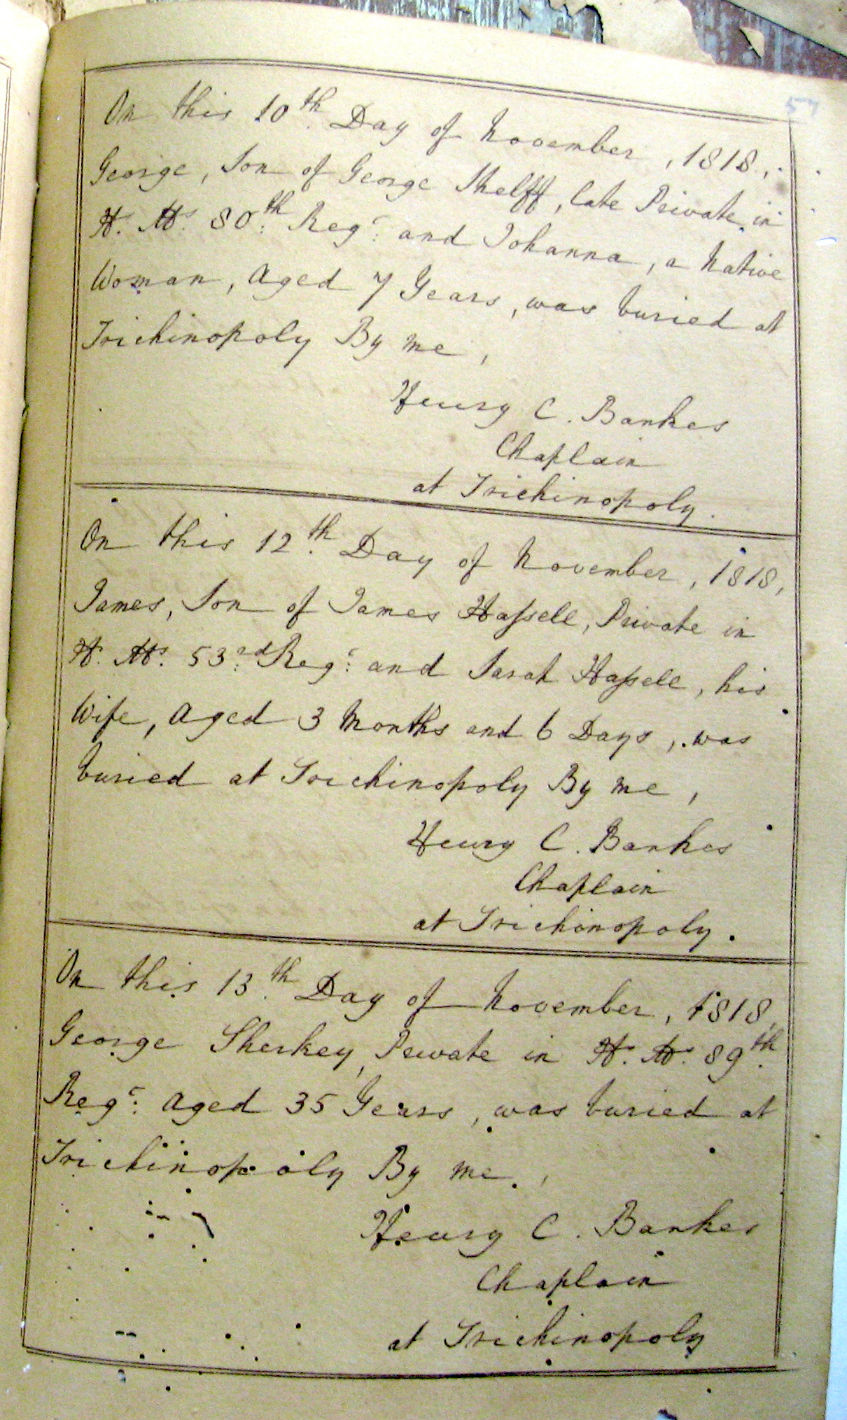 57
On this 10th Day of November, 1818,
George, Son of George Shelff, late Private in
H. Ms. 80th Regt. and Johanna, a Native
Woman, Aged 7 Years, was buried at
Trichinopoly By me,
Henry C. Bankes
Chaplain
at Trichinopoly.
On this 12th Day of November, 1818,
James, Son of James Haſsell, Private in
H. Ms. 53rd Regt. and Sarah Haſsell, his
Wife, Aged 3 Months and 6 Days, was
buried at Trichinopoly By me,
Henry C. Bankes
Chaplain
at Trichinopoly.
On this 13th Day of November, 1818,
George Sherkey, Private in H. Ms. 89th
Regt. Aged 35 Years, was buried at
Trichinopoly By me,
Henry C. Bankes
Chaplain
at Trichinopoly